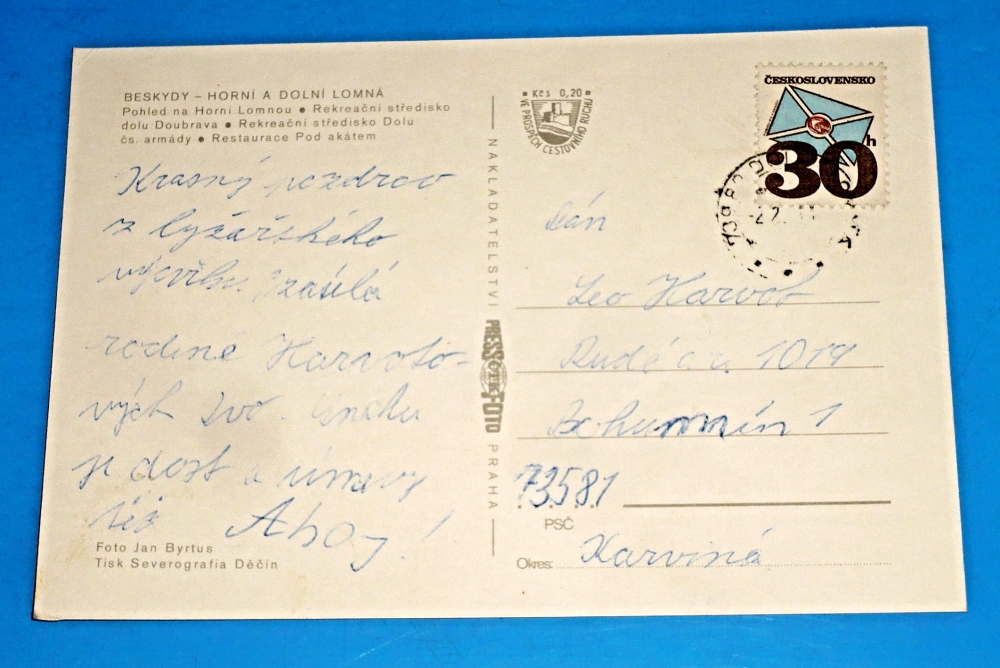 BESKYDY – HORNÍ A DOLNÍ LOMNÁ
Pohled na Horní Lomnou ● Rekreační středisko
dolu Doubrava ● Rekreační středisko Dolu
čs. armády ● Restaurace Pod akátem
Krásný pozdrav
z lyžařského
výcviku zasílá
rodině Harvoto-
vých Ivo. Sněhu
je dost a únavy
též Ahoj!
Foto Jan Byrtus
Tisk Severografia Děčín
NAKLADATELSTVÍ
PRESSFOTO
PRAHA
Kčs 0,20
VE PROSPĚCH CESTOVNÍHO RUCHU
ČESKOSLOVENSKO
30 h
Leo Harvot
Rudé a r. 1019
Bohumín 1
73581
PSČ
Okres: Karviná